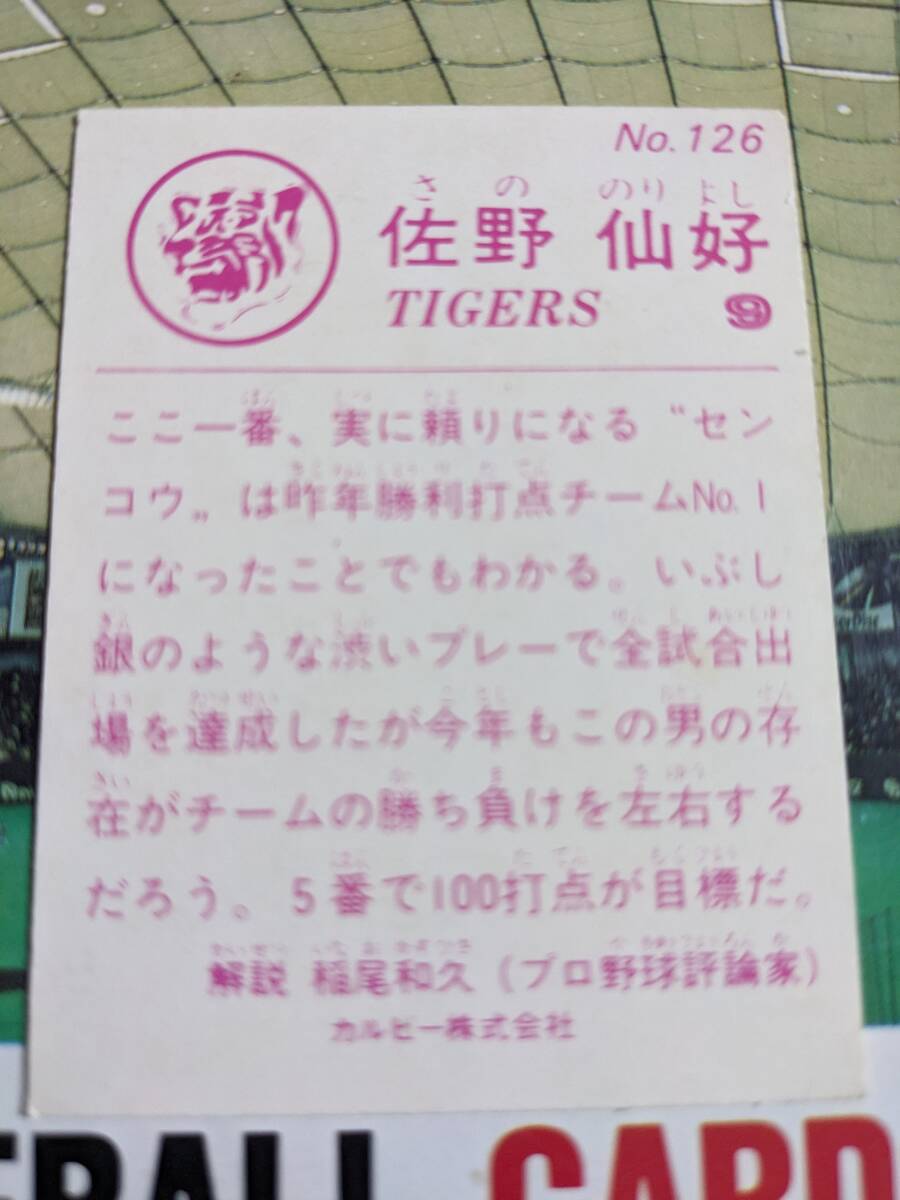 No. 126
さの のりよし
佐野 仙好
TIGERS 9
ここ一番、実に頼りになる〝セン
コウ〟は昨年勝利打点チームNo.1
になったことでもわかる。いぶし
銀のような渋いプレーで全試合出
場を達成したが今年もこの男の存
在がチームの勝ち負けを左右する
だろう。5番で100打点が目標だ。
解説 稲尾和久(プロ野球評論家)
カルビー株式会社
EBALL CARD